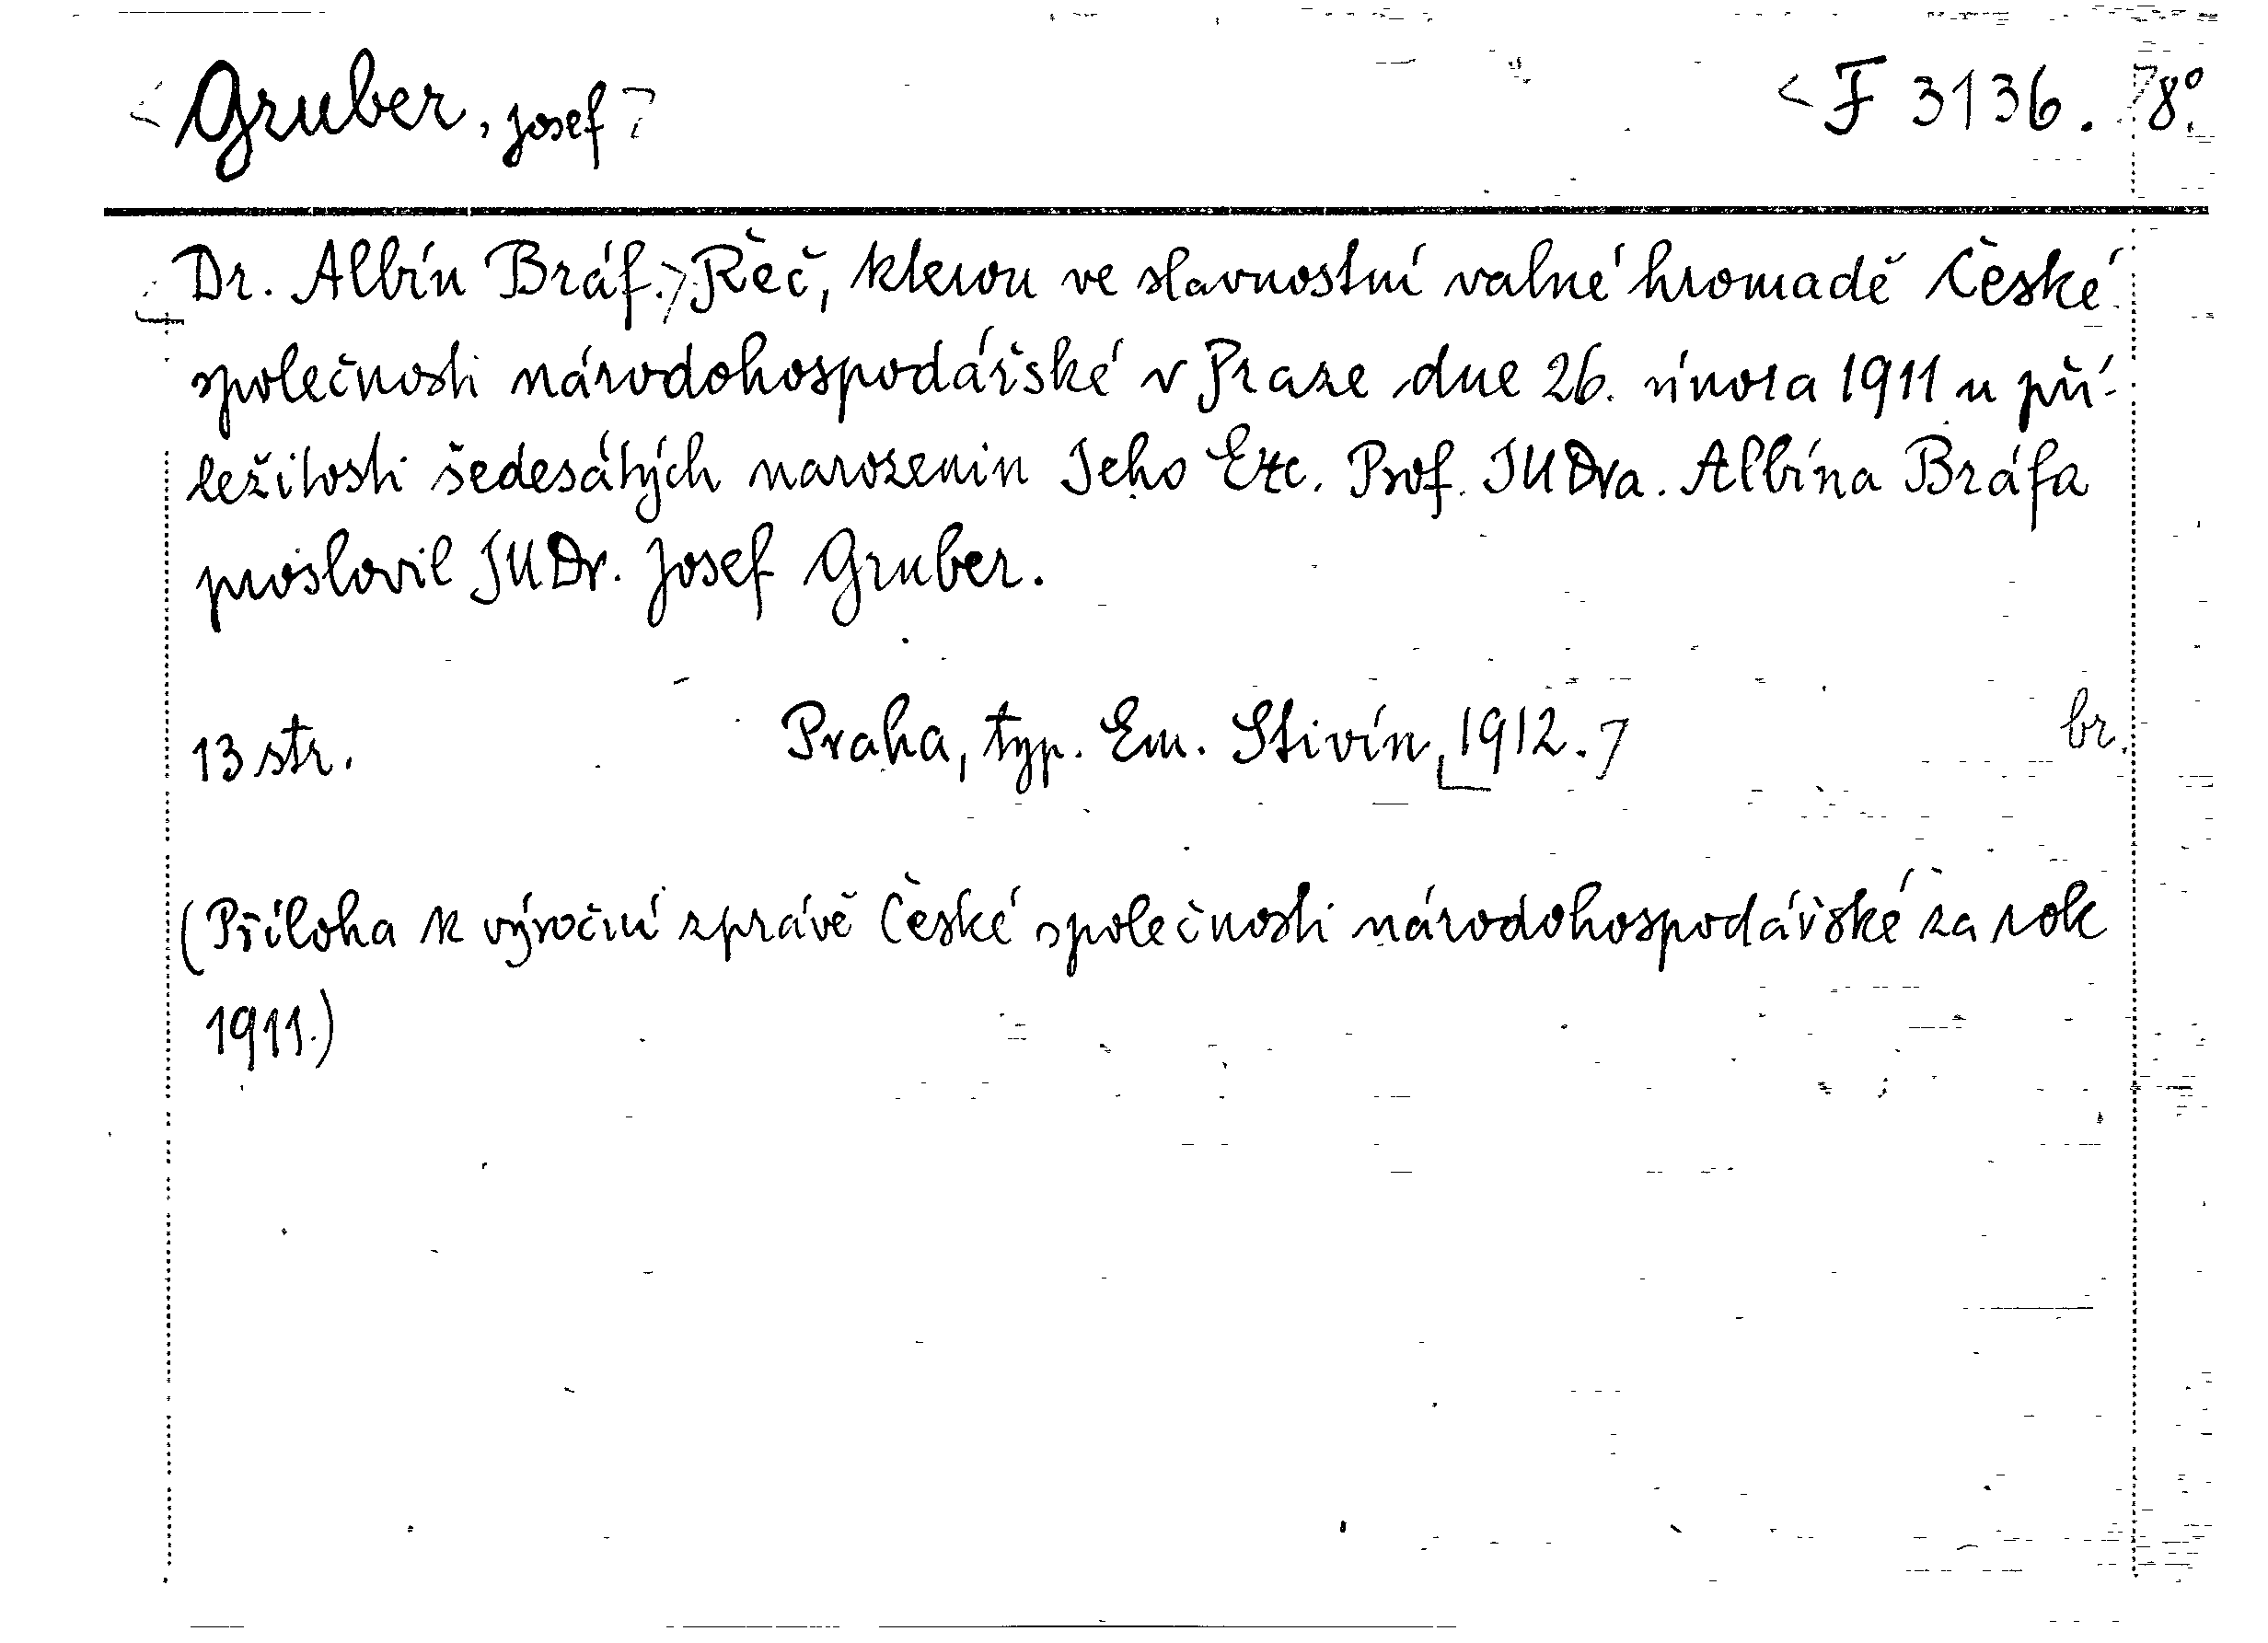 Gruber, Josef F 3136. 8°.
Dr. Albín Bráf. Řeč, kterou ve slavnostní valné hromadě České
společnosti národohospodářské v Praze dne 26. února 1911 u pří-
ležitosti šedesátých narozenin Jeho Exc. Prof. JUDra. Albína Bráfa
proslovil JUDr. Josef Gruber.
13 str. Praha, typ. Em. Stivín, 1912. br.
(Příloha k výroční zprávě České společnosti národohospodářské za rok
1911.)